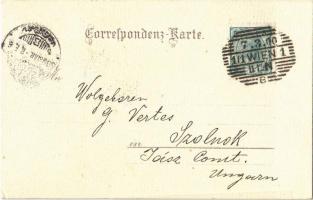 Correspondenz-Karte.
7.3.00
1/1 WIEN 1
Wolgeboren
G. Vertes
Szolnok
Jász Comt.
Ungarn